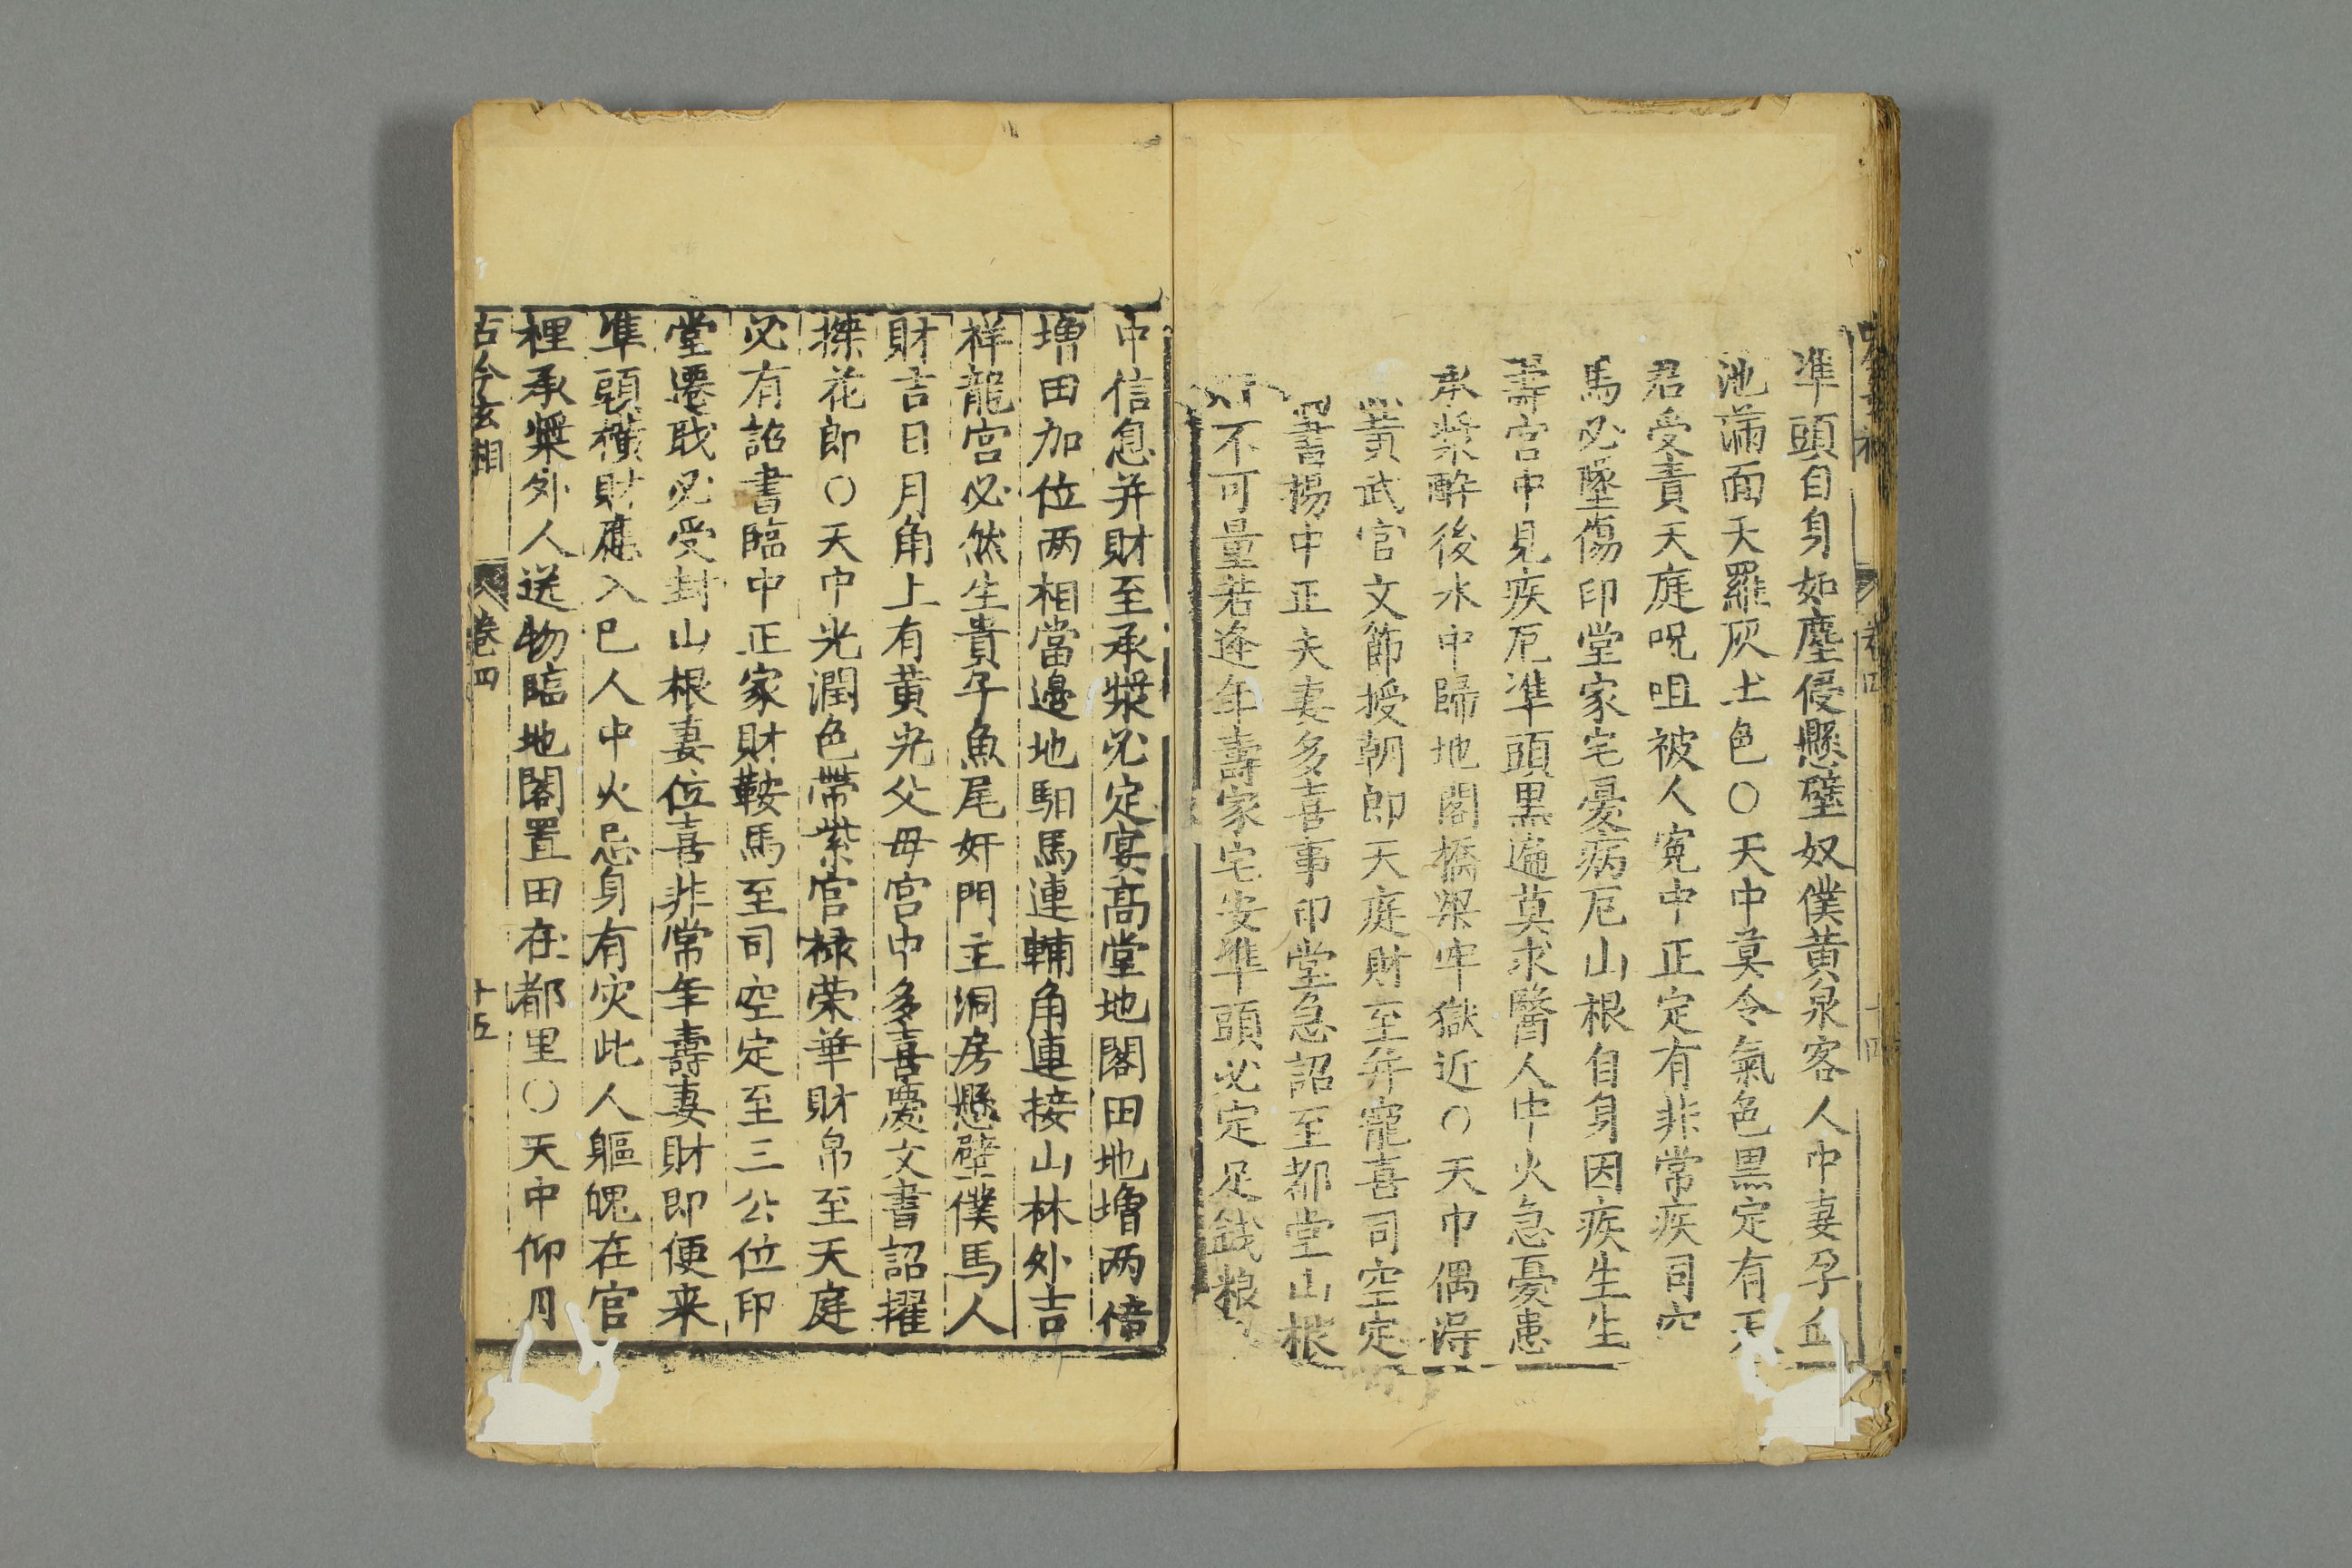 準頭自身如塵侵懸壁奴僕黄泉客人中妻孕血
池滿面天羅灰土色○天中莫令氣色黒定有天
君受責天庭呪咀被人寃中正定有非常疾司空
馬必墜傷印堂家宅憂病厄山根自身因疾生生
壽宮中見疾厄準頭黒遍莫求醫人中火急憂患
承漿醉後水中歸地閣橋梁牢獄近○天中偶得
黄武官文節授朝郎天庭財至并寵喜司空定
書揚中正夫妻多喜事印堂急詔至都堂山根
不可量若逢年壽家宅安準頭必定足錢粮
卷四
十四
中信息并財至承漿必定宴高堂地閣田地増两倍
増田加位两相當邊地駟馬連輔角連接山林外吉
祥龍宮必然生貴子魚尾奸門主洞房懸壁僕馬人
財吉日月角上有黄光父母宮中多喜慶文書詔擢
探花郎○天中光潤色帶紫官禄荣華財帛至天庭
必有詔書臨中正家財鞍馬至司空定至三公位印
堂遷戝必受封山根妻位喜非常年壽妻財即便来
準頭横財應入巳人中火忌身有灾此人軀䰟在官
裡承漿外人送物臨地閣置田在都里○天中仰月
古今玄相 卷四 十五